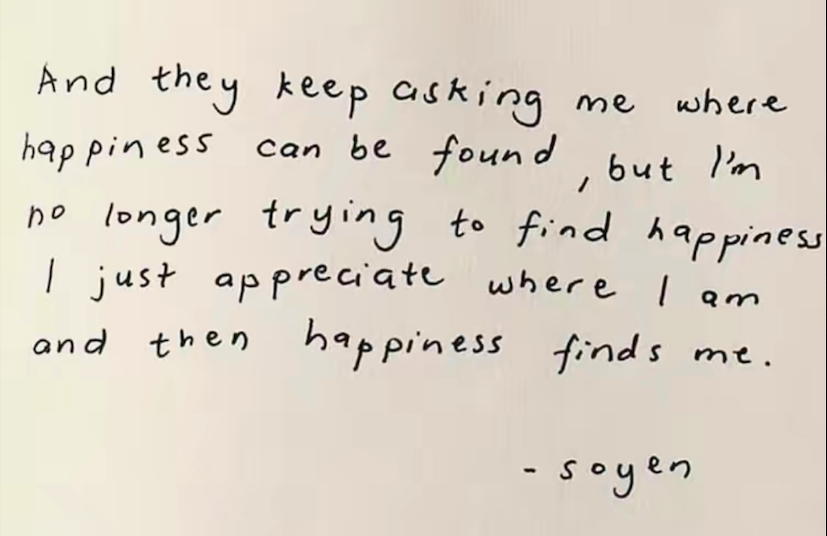 And they keep asking me where
happiness can be found, but I'm
no longer trying to find happiness
I just appreciate where I am
and then happiness finds me.
- soyen